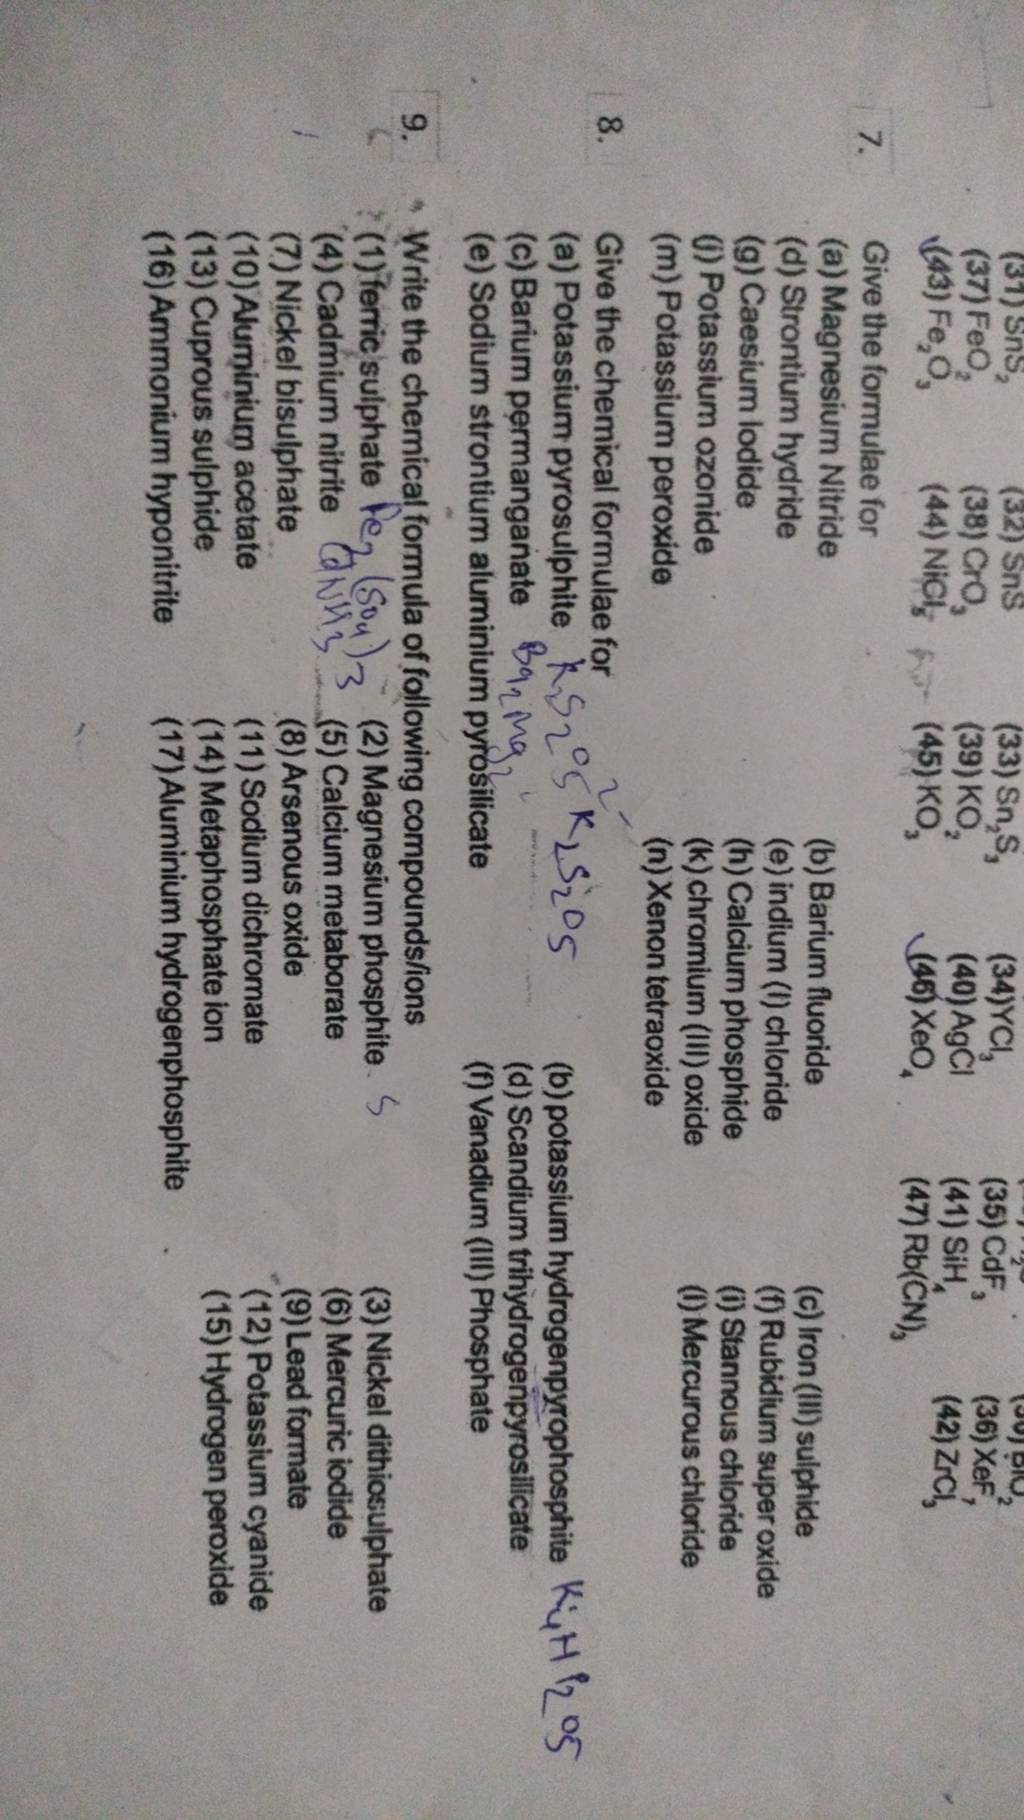 (31) SnS₂ (32) SnS (33) Sn₂S₃ (34)YCl₃ (35) CdF₃ (36) XeF₇
(37) FeO₂ (38) CrO₃ (39) KO₂ (40) AgCl (41) SiH₄ (42) ZrCl₃
(43) Fe₂O₃ (44) NiCl₅ (45) KO₃ (46) XeO₄ (47) Rb(CN)₃
7. Give the formulae for
(a) Magnesium Nitride (b) Barium fluoride (c) Iron (III) sulphide
(d) Strontium hydride (e) indium (I) chloride (f) Rubidium super oxide
(g) Caesium Iodide (h) Calcium phosphide (i) Stannous chloride
(j) Potassium ozonide (k) chromium (III) oxide (l) Mercurous chloride
(m) Potassium peroxide (n) Xenon tetraoxide
8. Give the chemical formulae for
(a) Potassium pyrosulphite K₂S₂O5 K₂S₂O5 (b) potassium hydrogenpyrophosphite K4HP₂O5
(c) Barium permanganate (d) Scandium trihydrogenpyrosilicate
(e) Sodium strontium aluminium pyrosilicate (f) Vanadium (III) Phosphate
9. Write the chemical formula of following compounds/ions
(1) ferric sulphate Fe₂(SO4)3 (2) Magnesium phosphite (3) Nickel dithiosulphate
(4) Cadmium nitrite CdNH3 (5) Calcium metaborate (6) Mercuric iodide
(7) Nickel bisulphate (8) Arsenous oxide (9) Lead formate
(10) Aluminium acetate (11) Sodium dichromate (12) Potassium cyanide
(13) Cuprous sulphide (14) Metaphosphate ion (15) Hydrogen peroxide
(16) Ammonium hyponitrite (17) Aluminium hydrogenphosphite